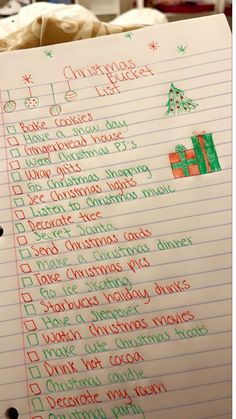 Christmas
Bucket
List
Bake cookies
Have a snow day
Gingerbread house
Wear Christmas PJ's
Wrap gifts
Go Christmas shopping
See Christmas lights
Listen to Christmas music
Decorate tree
Secret Santa
Send Christmas cards
make a Christmas dinner
Take Christmas pics
Go ice skating
Starbucks holiday drinks
Have a sleepover
Watch christmas movies
make cute Christmas treats
Drink hot cocoa
Christmas candle
Decorate my room
Christmas party